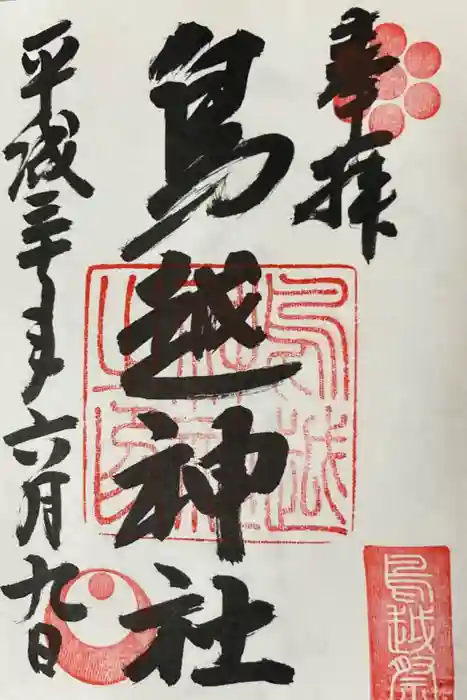 奉拝
鳥越神社
平成三十年六月九日
鳥越神社之印
鳥越祭